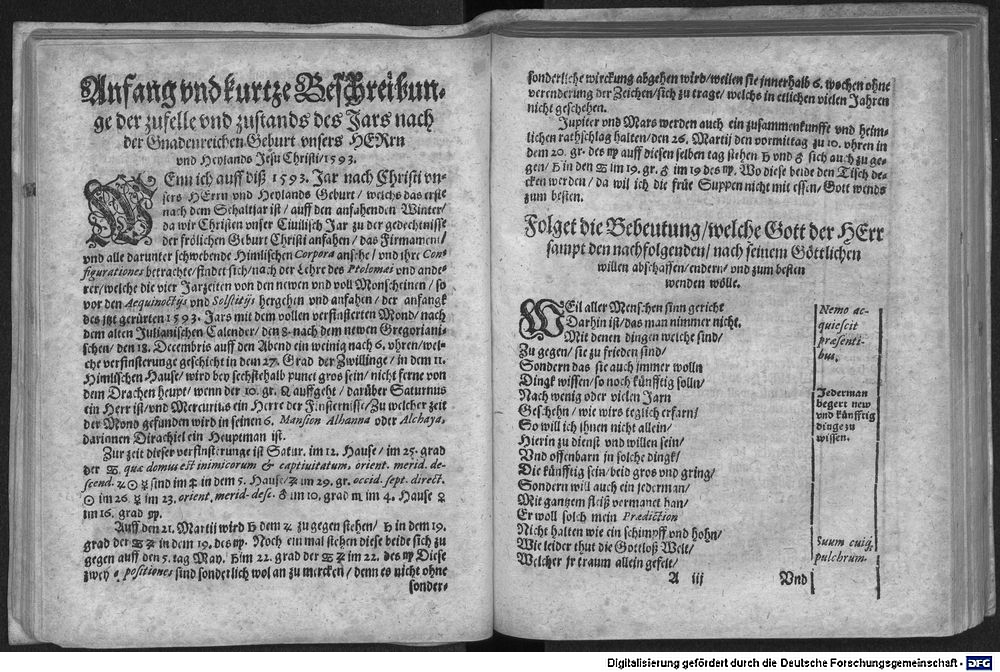 Anfang vnd kurtze Beschreibun-
ge der zufelle vnd zustands des Jars nach
der Gnadenreichen Geburt vnsers HERrn
vnd Heylands Jesu Christi/1593.
WEnn ich auff diß 1593. Jar nach Christi vn-
sers HErrn vnd Heylands Geburt/ welchs das erste
nach dem Schaltjar ist/ auff den anfahenden Winter/
da wir Christen vnser Ciuilisch Jar zu der gedechtnisse
der frölichen Geburt Christi anfahen/ das Firmament/
vnd alle darunter schwebende Himlischen Corpora ansehe/ vnd ihre Con-
figurationes betrachte/findet sich/nach der Lehre des Ptolomæi vnd ande-
rer/welche die vier Jarzeiten von den newen vnd voll Monscheinen/ so
vor den Aequinoctijs vnd Solstitijs hergehen vnd anfahen/ der anfangk
des jtzt gerürten 1593. Jars mit dem vollen verfinsterten Mond/ nach
dem alten Julianischen Calender/ den 8. nach dem newen Gregoriani-
schen/ den 18. Decembris auff den Abend ein weinig nach 6. vhren/wel-
che verfinsterunge geschicht in dem 27. Grad der Zwillinge / in dem 11.
Himlischen Hause/ wird bey sechstehalb punct gros sein/ nicht ferne von
dem Drachen heupt/ wenn der 10. gr. ♌ auffgeht / darüber Saturnus
ein Herr ist/ vnd Mercurius ein Herre der Finsternisse/ Zu welcher zeit
der Mond gefunden wird in seinen 6. Mansion Alhanna oder Alchaya,
darinnen Dirachiel ein Heuptman ist.
Zur zeit dieser verfinsterunge ist Satur. im 12. Hause/ im 25. grad
der ♋. quæ domus est inimicorum & captiuitatum, orient. merid. de-
scend. ♃ ☉ ☿ sind im ♐ in dem 5. Hause/ ♃ im 29. gr. occid. sept. direct.
☉ im 26. ☿ im 23. orient. merid. desc. ♂ im 10. grad ♏ im 4. Hause ♀
im 16. grad ♍.
Auff den 21. Martij wird ♄ dem ♃ zu gegen stehen/ ♄ in dem 19.
grad der ♋ ♃ in dem 19. des ♍. Noch ein mal stehen diese beide sich zu
gegen auff den 5. tag May. ♄ im 22. grad der ♋ ♃ im 22. des ♍ Diese
zwey oppositiones sind sonderlich wol an zu mercken/ denn es nicht ohne
sonder-
sonderliche wirckung abgehen wird/ weilen sie innerhalb 6. wochen ohne
verenderung der Zeichen/ sich zu trage/ welchs in etlichen vielen Jahren
nicht geschehen.
Jupiter vnd Mars werden auch ein zusammenkunfft vnd heim-
lichen rathschlag halten/ den 26. Martij den vormittag zu 10. vhren in
dem 20. gr. des ♍ auff diesen selben tag stehen ♄ vnd ♂ sich auch zu ge-
gen/ ♄ in den ♋ im 19. gr. ♂ im 19 des ♍. Wo diese beide den Tisch de-
cken werden/ da wil ich die früe Suppen nicht mit essen/ Gott wends
zum besten.
Folget die Bedeutung/welche Gott der HErr
sampt den nachfolgenden/ nach seinem Göttlichen
willen abschaffen/endern/ vnd zum besten
wenden wölle.
WEil aller Menschen sinn gericht
Darhin ist/ das man nimmer nicht.
Mit denen dingen welche sind/
Zu gegen/ sie zu frieden sind/
Sondern das sie auch immer wolln
Dingk wissen/ so noch künfftig solln/
Nach wenig oder vielen Jarn
Geschehn/ wie wirs teglich erfarn/
So will ich ihnen nicht allein/
Hierin zu dienst vnd willen sein/
Vnd offenbarn in solche dingk/
Die künfftig sein/ beid gros vnd gring/
Sondern will auch ein jederman/
Mit gantzem fleiß vermanet han/
Er woll solch mein Prædiction
Nicht halten wie ein schimpff vnd hohn/
Wie leider thut die Gottloß Welt/
Welcher jr traum allein gefelt/
A iij Vnd
Nemo ac-
quiescit
præsenti-
bus.
Jederman
begert new
vnd künfftig
dinge zu
wissen.
Suum cuiq;
pulchrum.
Digitalisierung gefördert durch die Deutsche Forschungsgemeinschaft - DFG